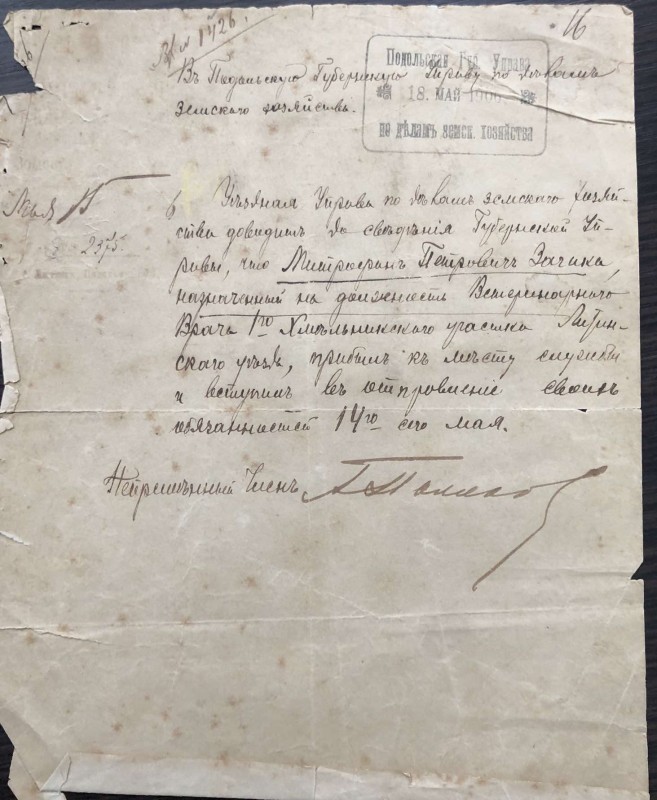 1726.
16
Подольская Губ. Управа
18. МАЙ 1906
по дѣламъ земск. хозяйства
Въ Подольскую Губернскую Управу по дѣламъ
земскаго хозяйства.
Мая 15
2375
Уѣздная Управа по дѣламъ земскаго хозяй-
ства доводитъ до свѣдѣнія Губернской Уп-
равы, что Митрофанъ Петровичъ Зачика,
назначенный на должность Ветеринарнаго
Врача 1го Хмѣльникскаго участка Литин-
скаго уѣзда, прибылъ къ мѣсту службы
и вступилъ въ отправленіе своихъ
обязанностей 14го сего мая.
Непремѣнный Членъ